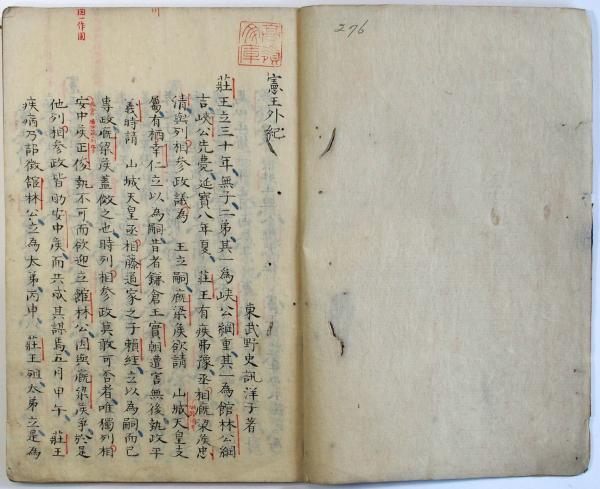 276
憲王外紀
東武野史訊洋子著
莊王立三十年無子二弟其一為峽公綱重其一為館林公綱
吉峽公先薨延寶八年夏莊王有疾弗豫丞相廐梁侯忠
清與列相參政議為 王立嗣廐梁侯欲請 山城天皇支
屬有栖幸仁立以為嗣昔者鎌倉王實朝遭害無後執政平
義時請 山城天皇丞相藤道家之子賴經立以為嗣而已
專政廐梁侯蓋傚之也時列相參政莫敢可否者唯獨列相
安中侯正俊執不可而欲迎立館林公因與廐梁侯爭於是
他列相參政皆助安中侯而共成其謀焉五月甲午 莊王
疾病乃詔徵館林公立為太弟丙申 莊王殂太弟立是為